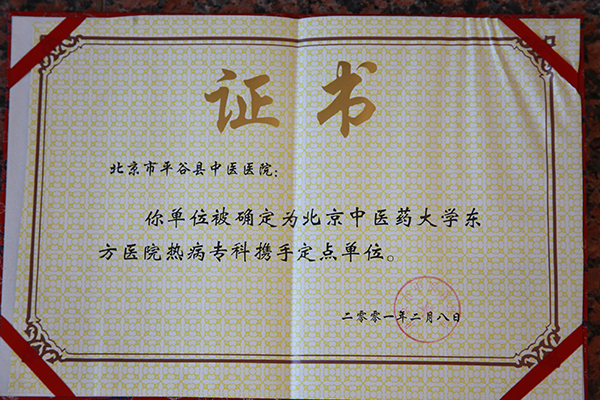 证书
北京市平谷县中医医院：
你单位被确定为北京中医药大学东
方医院热病专科携手定点单位。
二零零一年二月八日